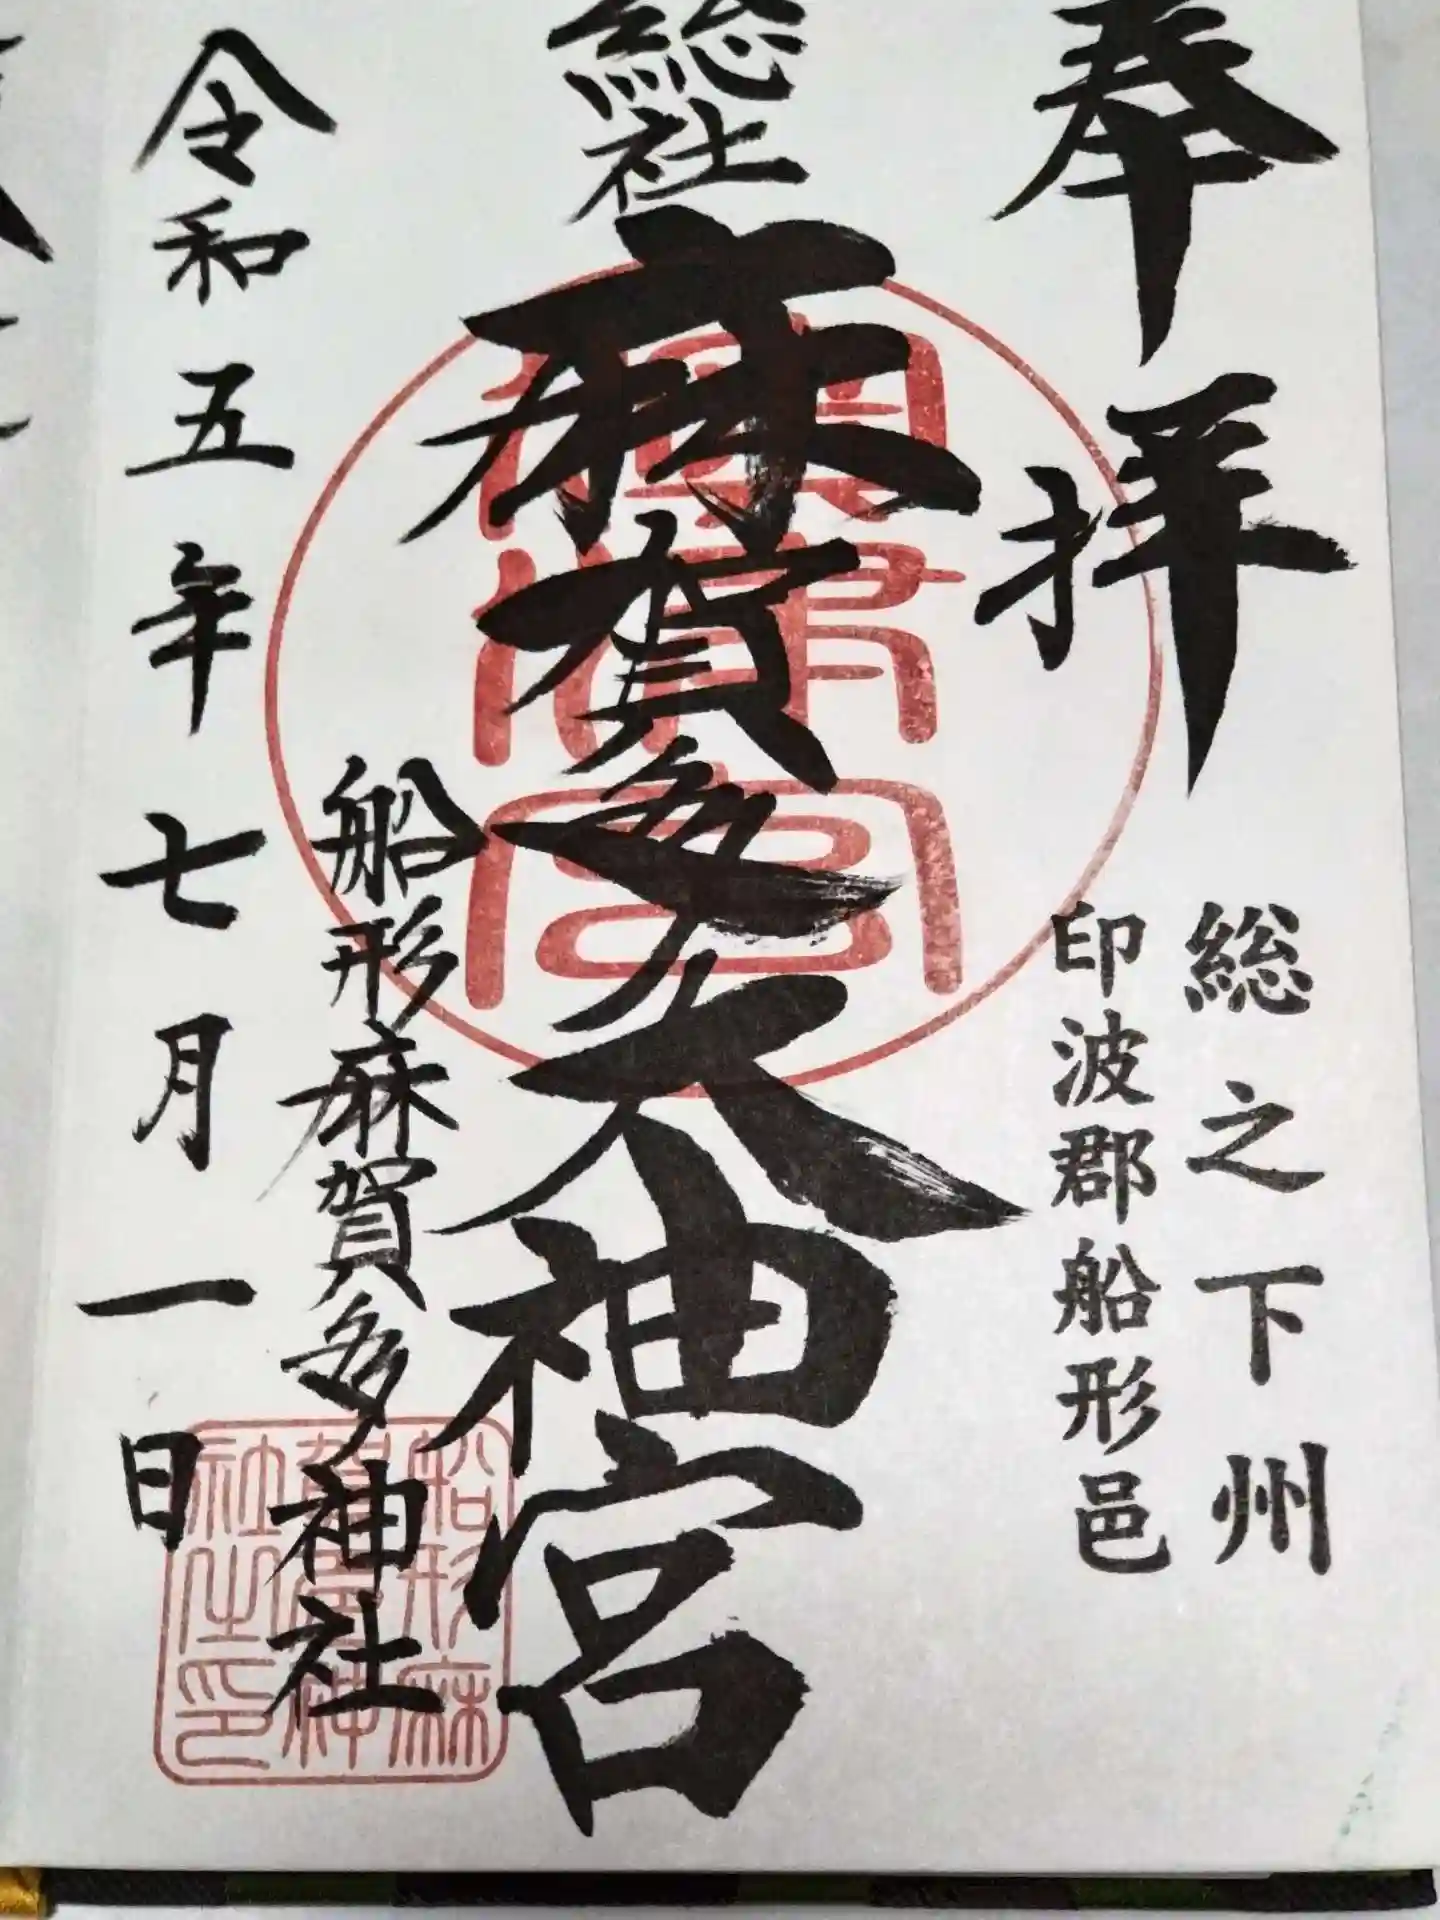 奉拝
総之下州
印波郡船形邑
総社
麻賀多大神宮
船形麻賀多神社
令和五年七月一日
船形麻
賀多神
社之印